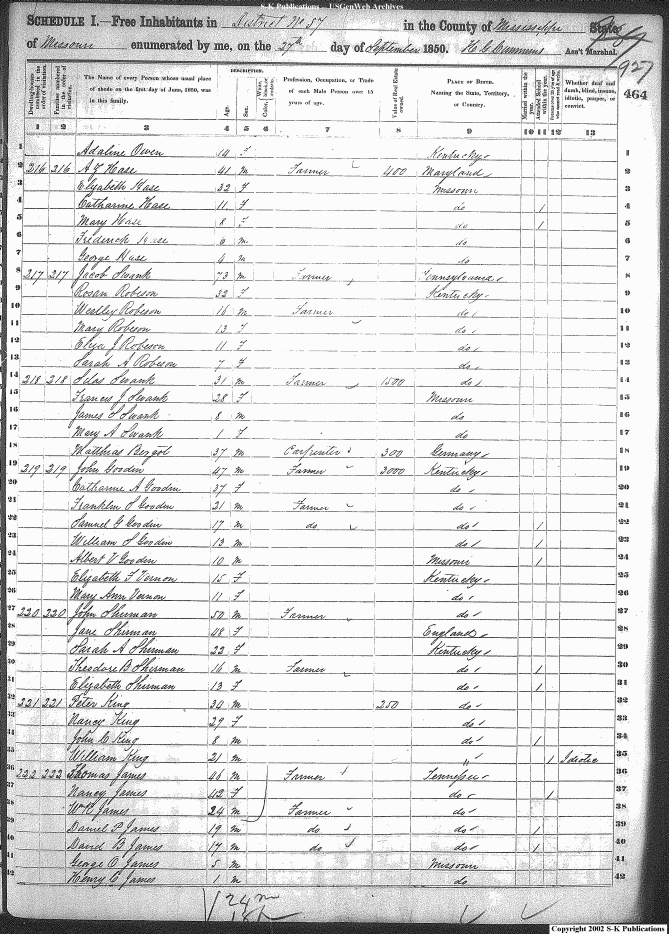 S-K Publications - USGenWeb Archives
SCHEDULE I.—Free Inhabitants in District No 87 in the County of Mississippi State
of Missouri enumerated by me, on the 27th day of September 1850. Ass't Marshal.
927
464
DESCRIPTION.
Dwelling-houses numbered in the order of visitation.
Families numbered in the order of visitation.
The Name of every Person whose usual place of abode on the first day of June, 1850, was in this family.
Age.
Sex.
Profession, Occupation, or Trade of each Male Person over 15 years of age.
Value of Real Estate owned.
PLACE OF BIRTH. Naming the State, Territory, or Country.
Married within the year.
Attended School within the year.
Whether deaf and dumb, blind, insane, idiotic, pauper, or convict.
1 2 3 4 5 6 7 8 9 10 11 12 13
1 Adaline Owen 14 F Kentucky 1
2 216 216 A F Hase 41 M Farmer 400 Maryland 2
3 Elizabeth Hase 32 F Missouri 3
4 Catharine Hase 11 F do / 4
5 Mary Hase 8 F do / 5
6 Frederick Hase 6 M do 6
7 George Hase 4 M do 7
8 217 217 Jacob Swank 73 M Farmer Pennsylvania 8
9 Rosan Robeson 32 F Kentucky 9
10 Westley Robeson 16 M Farmer do 10
11 Mary Robeson 13 F do 11
12 Eliza J Robeson 11 F do 12
13 Sarah A Robeson 7 F do 13
14 218 218 Silas Swank 31 M Farmer 1500 do 14
15 Francis J Swank 28 F Missouri 15
16 James S Swank 8 M do 16
17 Mary A Swank 1 F do 17
18 Matthias 37 M Carpenter 300 Germany 18
19 219 219 John Gooden 47 M Farmer 3000 Kentucky 19
20 Catharine A Gooden 37 F do 20
21 Franklin S Gooden 21 M Farmer do 21
22 Samuel G Gooden 17 M do do / 22
23 William S Gooden 13 M do / 23
24 Albert V Gooden 10 M Missouri / 24
25 Elizabeth F Vernon 15 F Kentucky 25
26 Mary Ann Vernon 11 F do 26
27 220 220 John Shuman 50 M Farmer do 27
28 Jane Shuman 48 F England 28
29 Sarah A Shuman 22 F Kentucky 29
30 Theodore B Shuman 16 M Farmer do / 30
31 Elizabeth Shuman 13 F do / 31
32 221 221 Peter King 34 M 250 do 32
33 Nancy King 29 F do 33
34 John C King 8 M do / 34
35 William King 21 M " / Idiotic 35
36 222 222 Thomas James 46 M Farmer Tennessee 36
37 Nancy James 42 F do / 37
38 Wm James 24 M Farmer do 38
39 Daniel P James 19 M do do / 39
40 David B James 17 M do do / 40
41 George O James 5 M Missouri 41
42 Henry C James 1 M do 42
24 m
18 f
Copyright 2002 S-K Publications